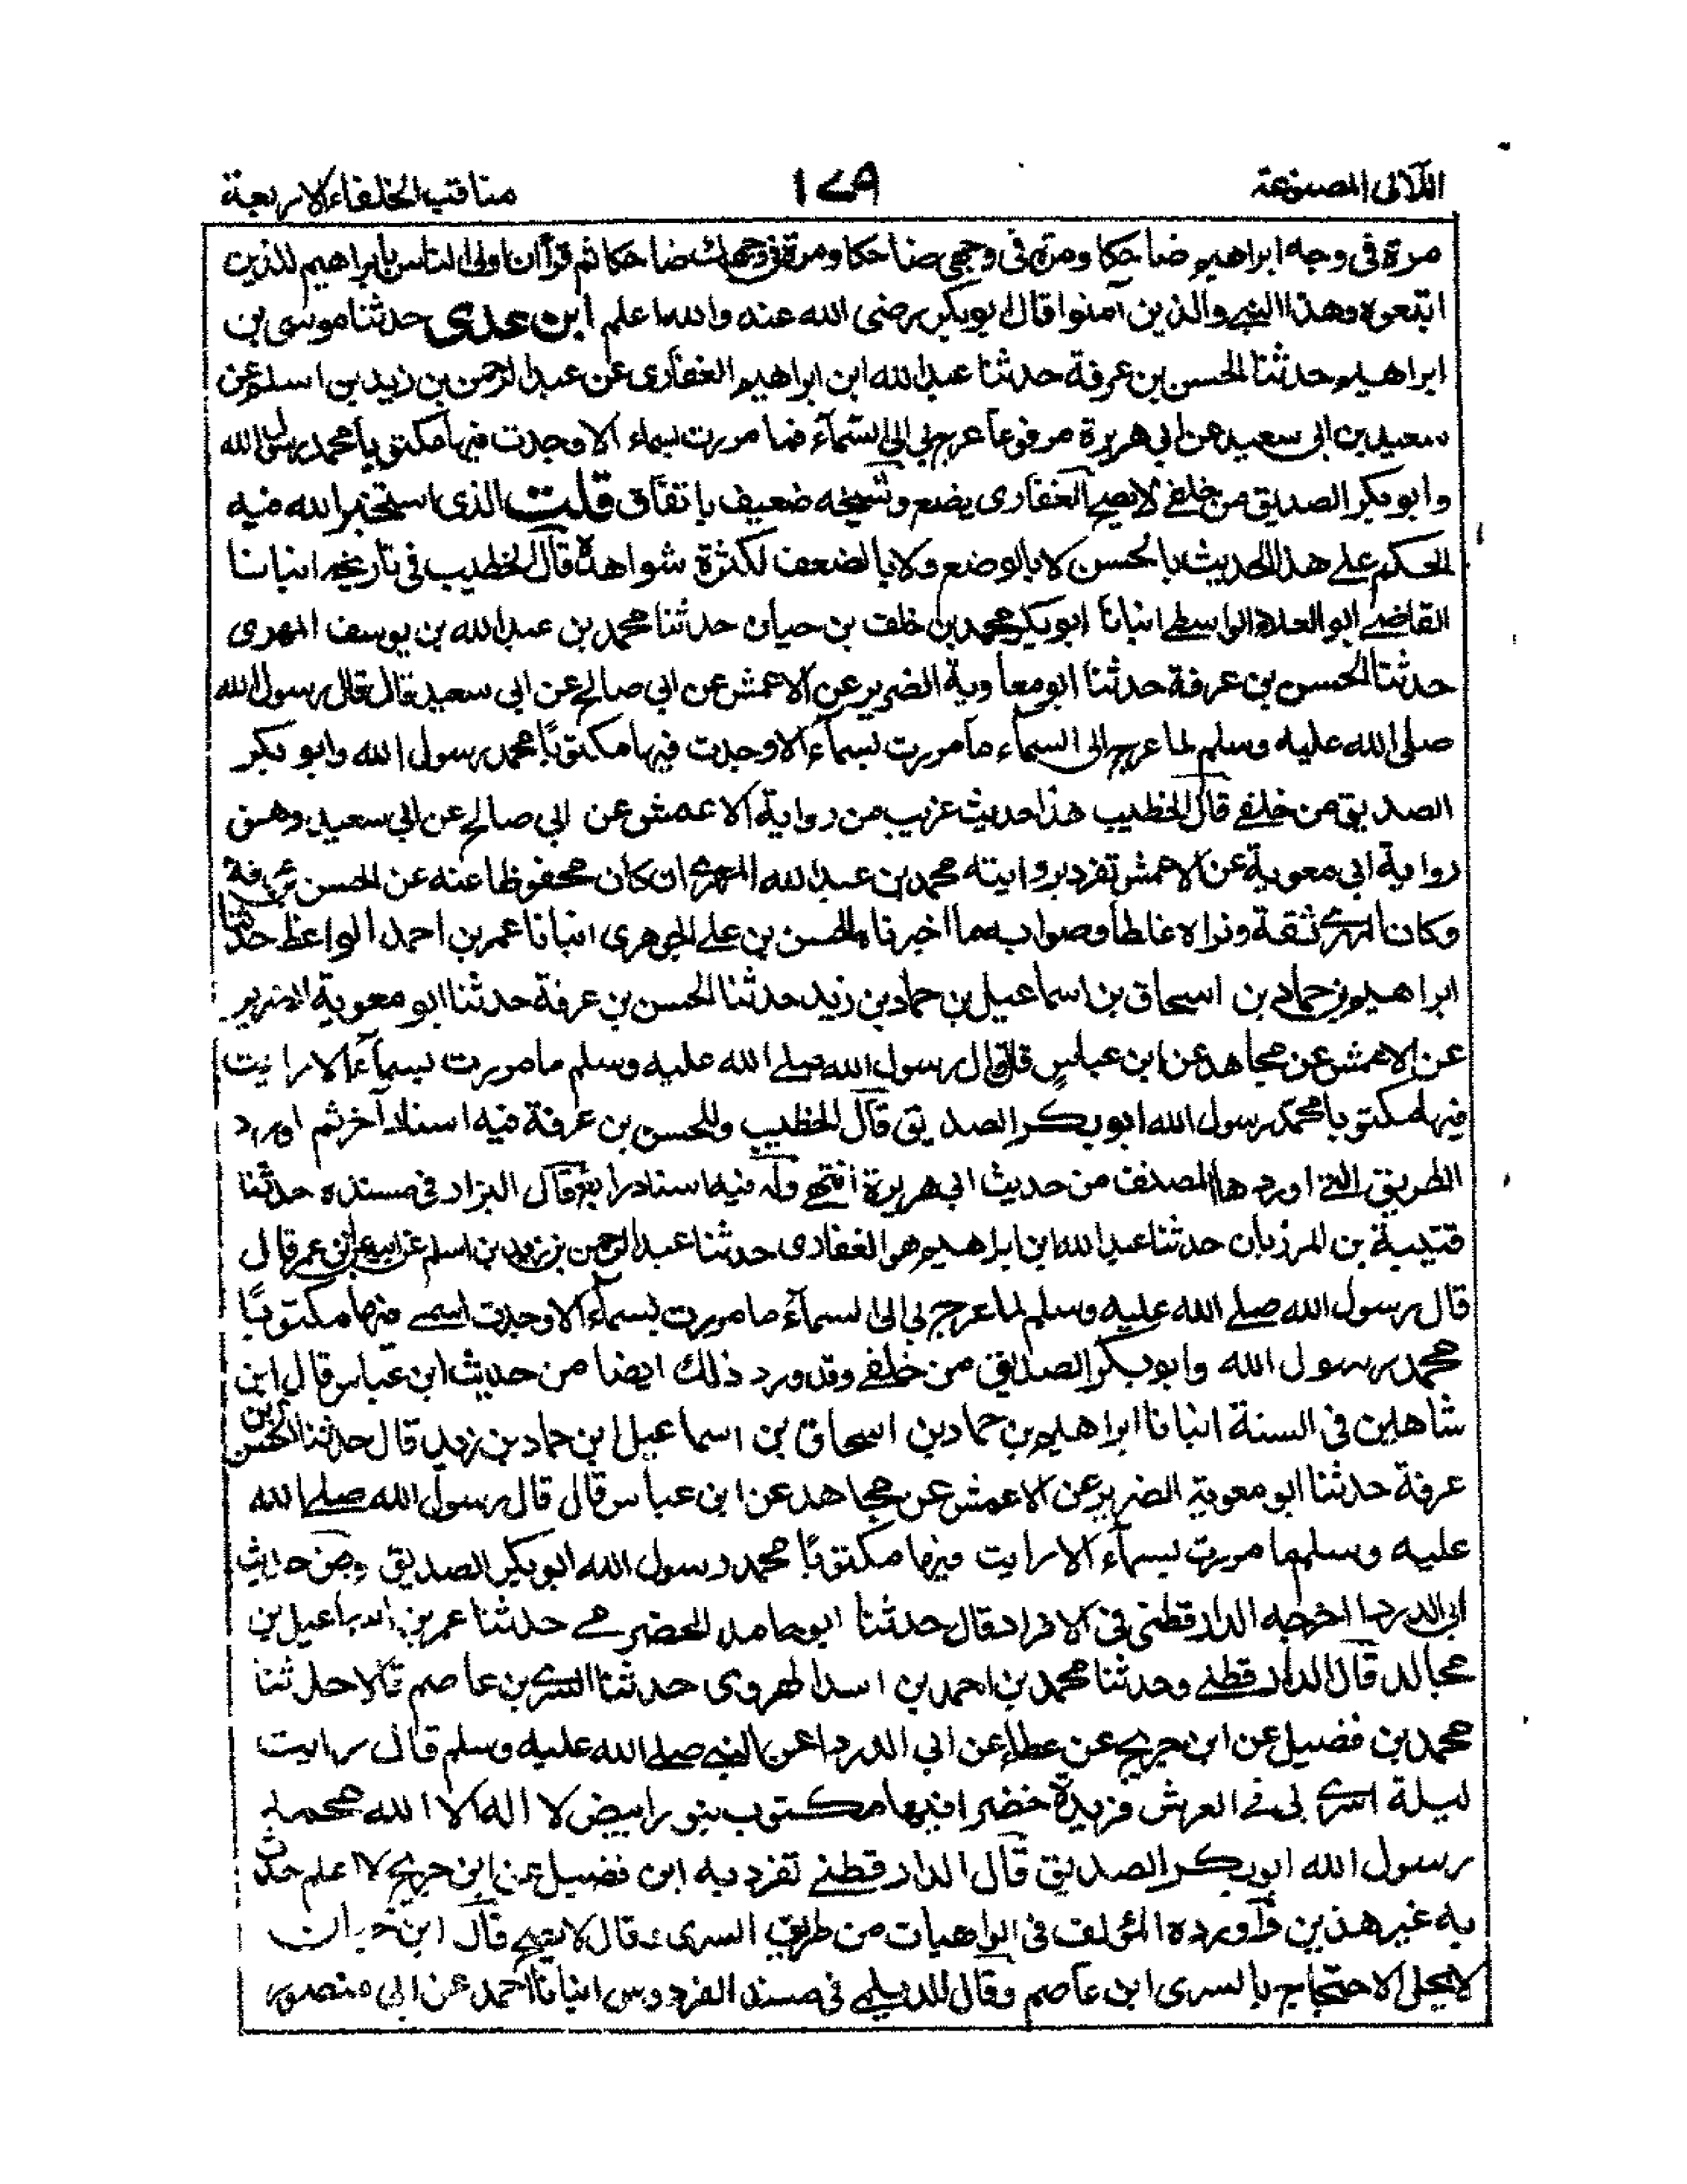 اللآلى المصنوعة
١٧٩
مناقب الخلفاء الاربعة
مرة فى وجه ابراهيم ضاحكا ومرة فى وجهى ضاحكا ومرة فى وجهك ضاحكا ثم قرأ ان اولى الناس بابراهيم للذين
اتبعوه وهذا النبى والذين آمنوا قال ابوبكر رضى الله عنه والله اعلم ابن عدى حدثنا موسى بن
ابراهيم حدثنا الحسن بن عرفة حدثنا عبد الله ابن ابراهيم الغفارى عن عبد الرحمن بن زيد بن اسلم عن
سعيد بن ابى سعيد عن ابى هريرة مرفوعا عرج بى الى السمآء فما مررت بسماء الا وجدت فيها مكتوبا محمد رسول الله
وابو بكر الصديق من خلفى لا يصح الغفارى يضع وشيخه ضعيف باتفاق قلت الذى استخير الله فيه
الحكم على هذا الحديث بالحسن لا بالوضع ولا بالضعف لكثرة شواهده قال الخطيب فى تاريخه انبانا
القاضى ابو العلاء الواسطى انبانا ابو بكر محمد بن خلف بن حيان حدثنا محمد بن عبد الله بن يوسف المهرى
حدثنا الحسن بن عرفة حدثنا ابو معاوية الضرير عن الاعمش عن ابى صالح عن ابى سعيد قال قال رسول الله
صلى الله عليه وسلم لما عرج الى السمآء ما مررت بسمآء الا وجدت فيها مكتوبًا محمد رسول الله وابو بكر
الصديق من خلفى قال الخطيب هذا حديث غريب من رواية الاعمش عن ابى صالح عن ابى سعيد ومن
رواية ابى معوية عن الاعمش تفرد بروايته محمد بن عبد الله المهرى ان كان محفوظا عنه عن الحسن بن عرفة
وكان المهرى ثقة ونراه غلطا وصوابه ما اخبرناه الحسن بن على الجوهرى انبانا عمر بن احمد الواعظ حدثنا
ابراهيم بن حماد بن اسحاق بن اسماعيل بن حماد بن زيد حدثنا الحسن بن عرفة حدثنا ابو معوية الضرير
عن الاعمش عن مجاهد عن ابن عباس قال قال رسول الله صلى الله عليه وسلم ما مررت بسمآء الا رايت
فيها مكتوبا محمد رسول الله ابو بكر الصديق قال الخطيب وللحسن بن عرفة فيه اسناد آخر ثم اورد
الطريق التى اوردها المصنف من حديث ابى هريرة انتهى وله فيه اسناد رابع قال البزار فى مسنده حدثنا
قتيبة بن المرزبان حدثنا عبد الله ابن ابراهيم هو الغفارى حدثنا عبد الرحمن بن زيد بن اسلم عن ابيه عن ابن عمر قال
قال رسول الله صلى الله عليه وسلم لما عرج بى الى السمآء ما مررت بسمآء الا وجدت اسمى فيها مكتوبًا
محمد رسول الله وابو بكر الصديق من خلفى وقد ورد ذلك ايضا من حديث ابن عباس قال ابن
شاهين فى السنة انبانا ابراهيم بن حماد بن اسحاق بن اسماعيل ابن حماد بن زيد قال حدثنا الحسن بن
عرفة حدثنا ابو معوية الضرير عن الاعمش عن مجاهد عن ابن عباس قال قال رسول الله صلى الله
عليه وسلم ما مررت بسمآء الا رايت فيها مكتوبًا محمد رسول الله ابو بكر الصديق ومن حديث
ابى الدردا اخرجه الدارقطنى فى الافراد قال حدثنا ابو حامد الحضرمى حدثنا عمر بن اسماعيل بن
مجالد قال الدارقطنى وحدثنا محمد بن احمد بن اسد الهروى حدثنا السرى بن عاصم قالا حدثنا
محمد بن فضيل عن ابن جريج عن عطاء عن ابى الدردا عن النبى صلى الله عليه وسلم قال رايت
ليلة اسرى بى فى العرش فريدة خضرا فيها مكتوب بنور ابيض لا اله الا الله محمد
رسول الله ابو بكر الصديق قال الدارقطنى تفرد به ابن فضيل عن ابن جريج لا اعلم حدث
به غير هذين واورده المؤلف فى الواهيات من طريق السرى وقال لا يصح قال ابن حبان
لا يحل الاحتجاج بالسرى ابن عاصم وقال الديلمى فى مسند الفردوس انبانا احمد عن ابى منصور